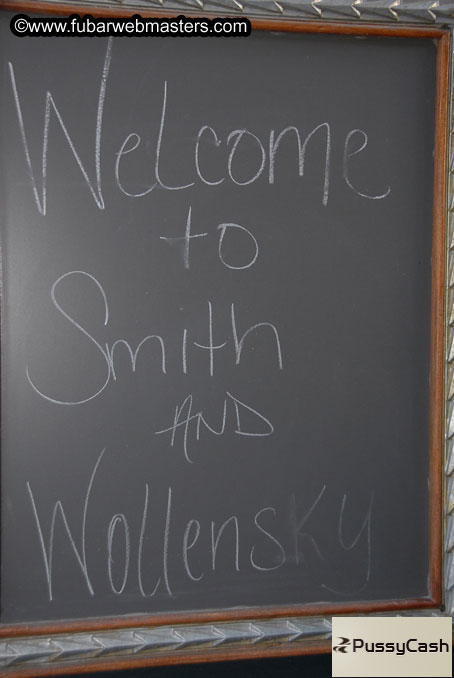 ©www.fubarwebmasters.com
Welcome
to
Smith
AND
Wollensky
PussyCash